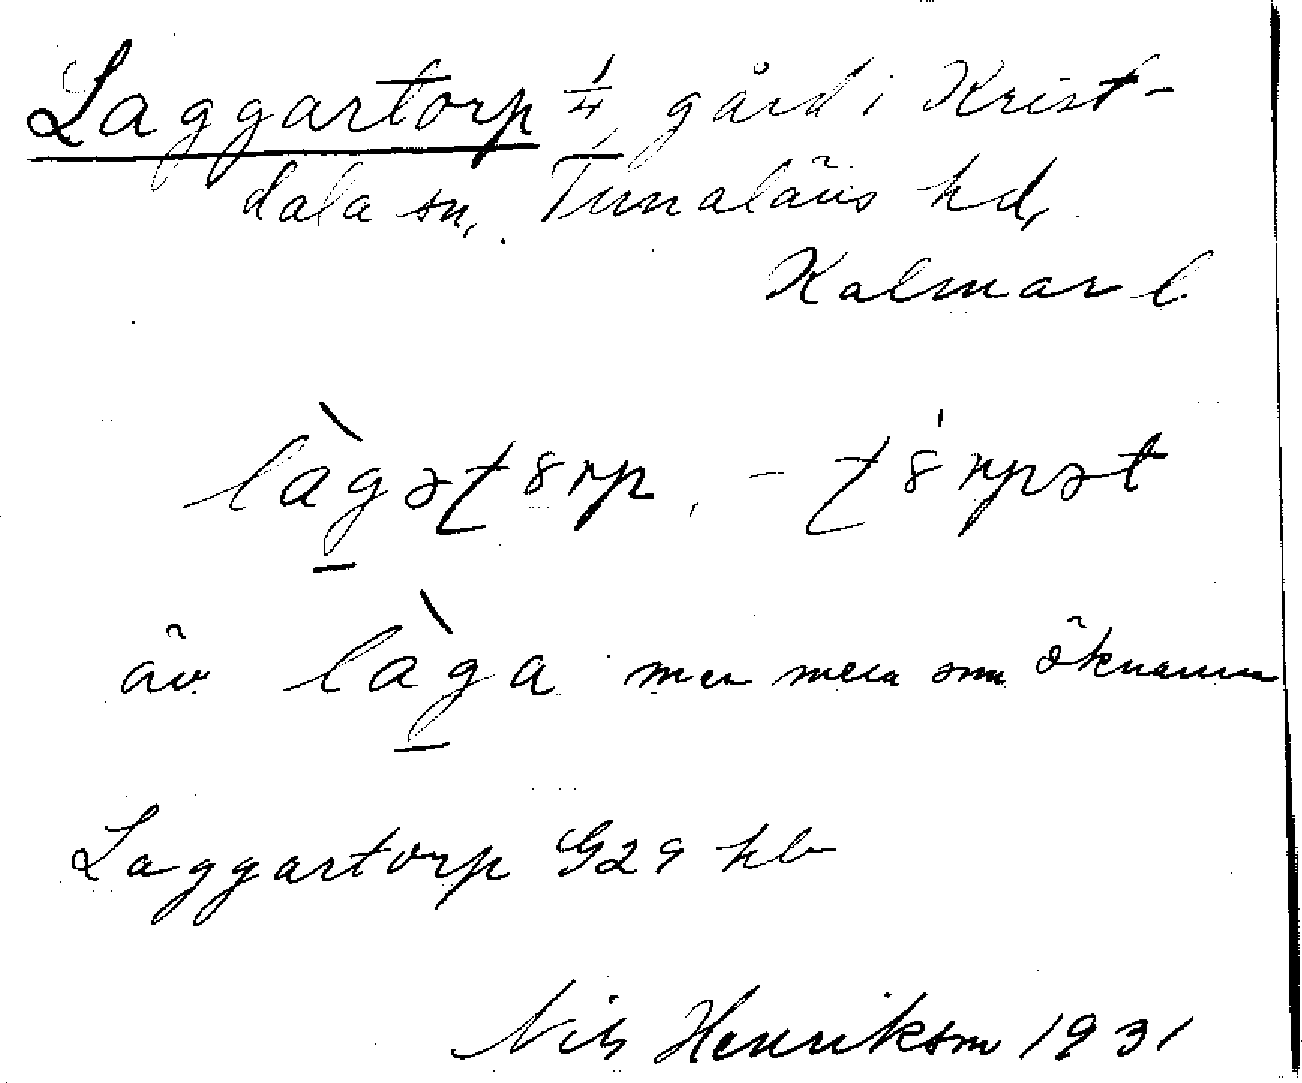 Laggartorp 1/4 gård i Krist-
dala sn, Tunaläns hd,
Kalmar l.
làgəʈ8rp, - ʈ8́rpət
äv làga mer mera som öknamn
Laggartorp G29 kb
Nils Henriksson 1931